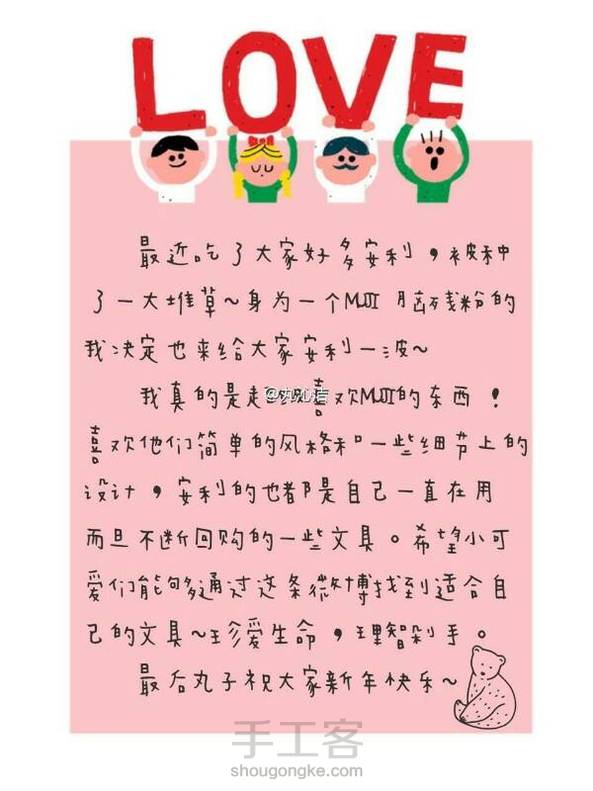 LOVE
最近吃了大家好多安利，被种
了一大堆草~身为一个MUJI脑残粉的
我决定也来给大家安利一波~
我真的是超喜欢MUJI的东西！
喜欢他们简单的风格和一些细节上的
设计，安利的也都是自己一直在用
而且不断回购的一些文具。希望小可
爱们能够通过这条微博找到适合自
己的文具~珍爱生命，理智剁手。
最后丸子祝大家新年快乐~
手工客
shougongke.com